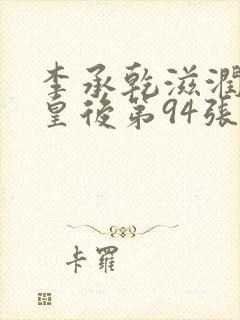 李承乾滋潤
皇後第94張
卡羅